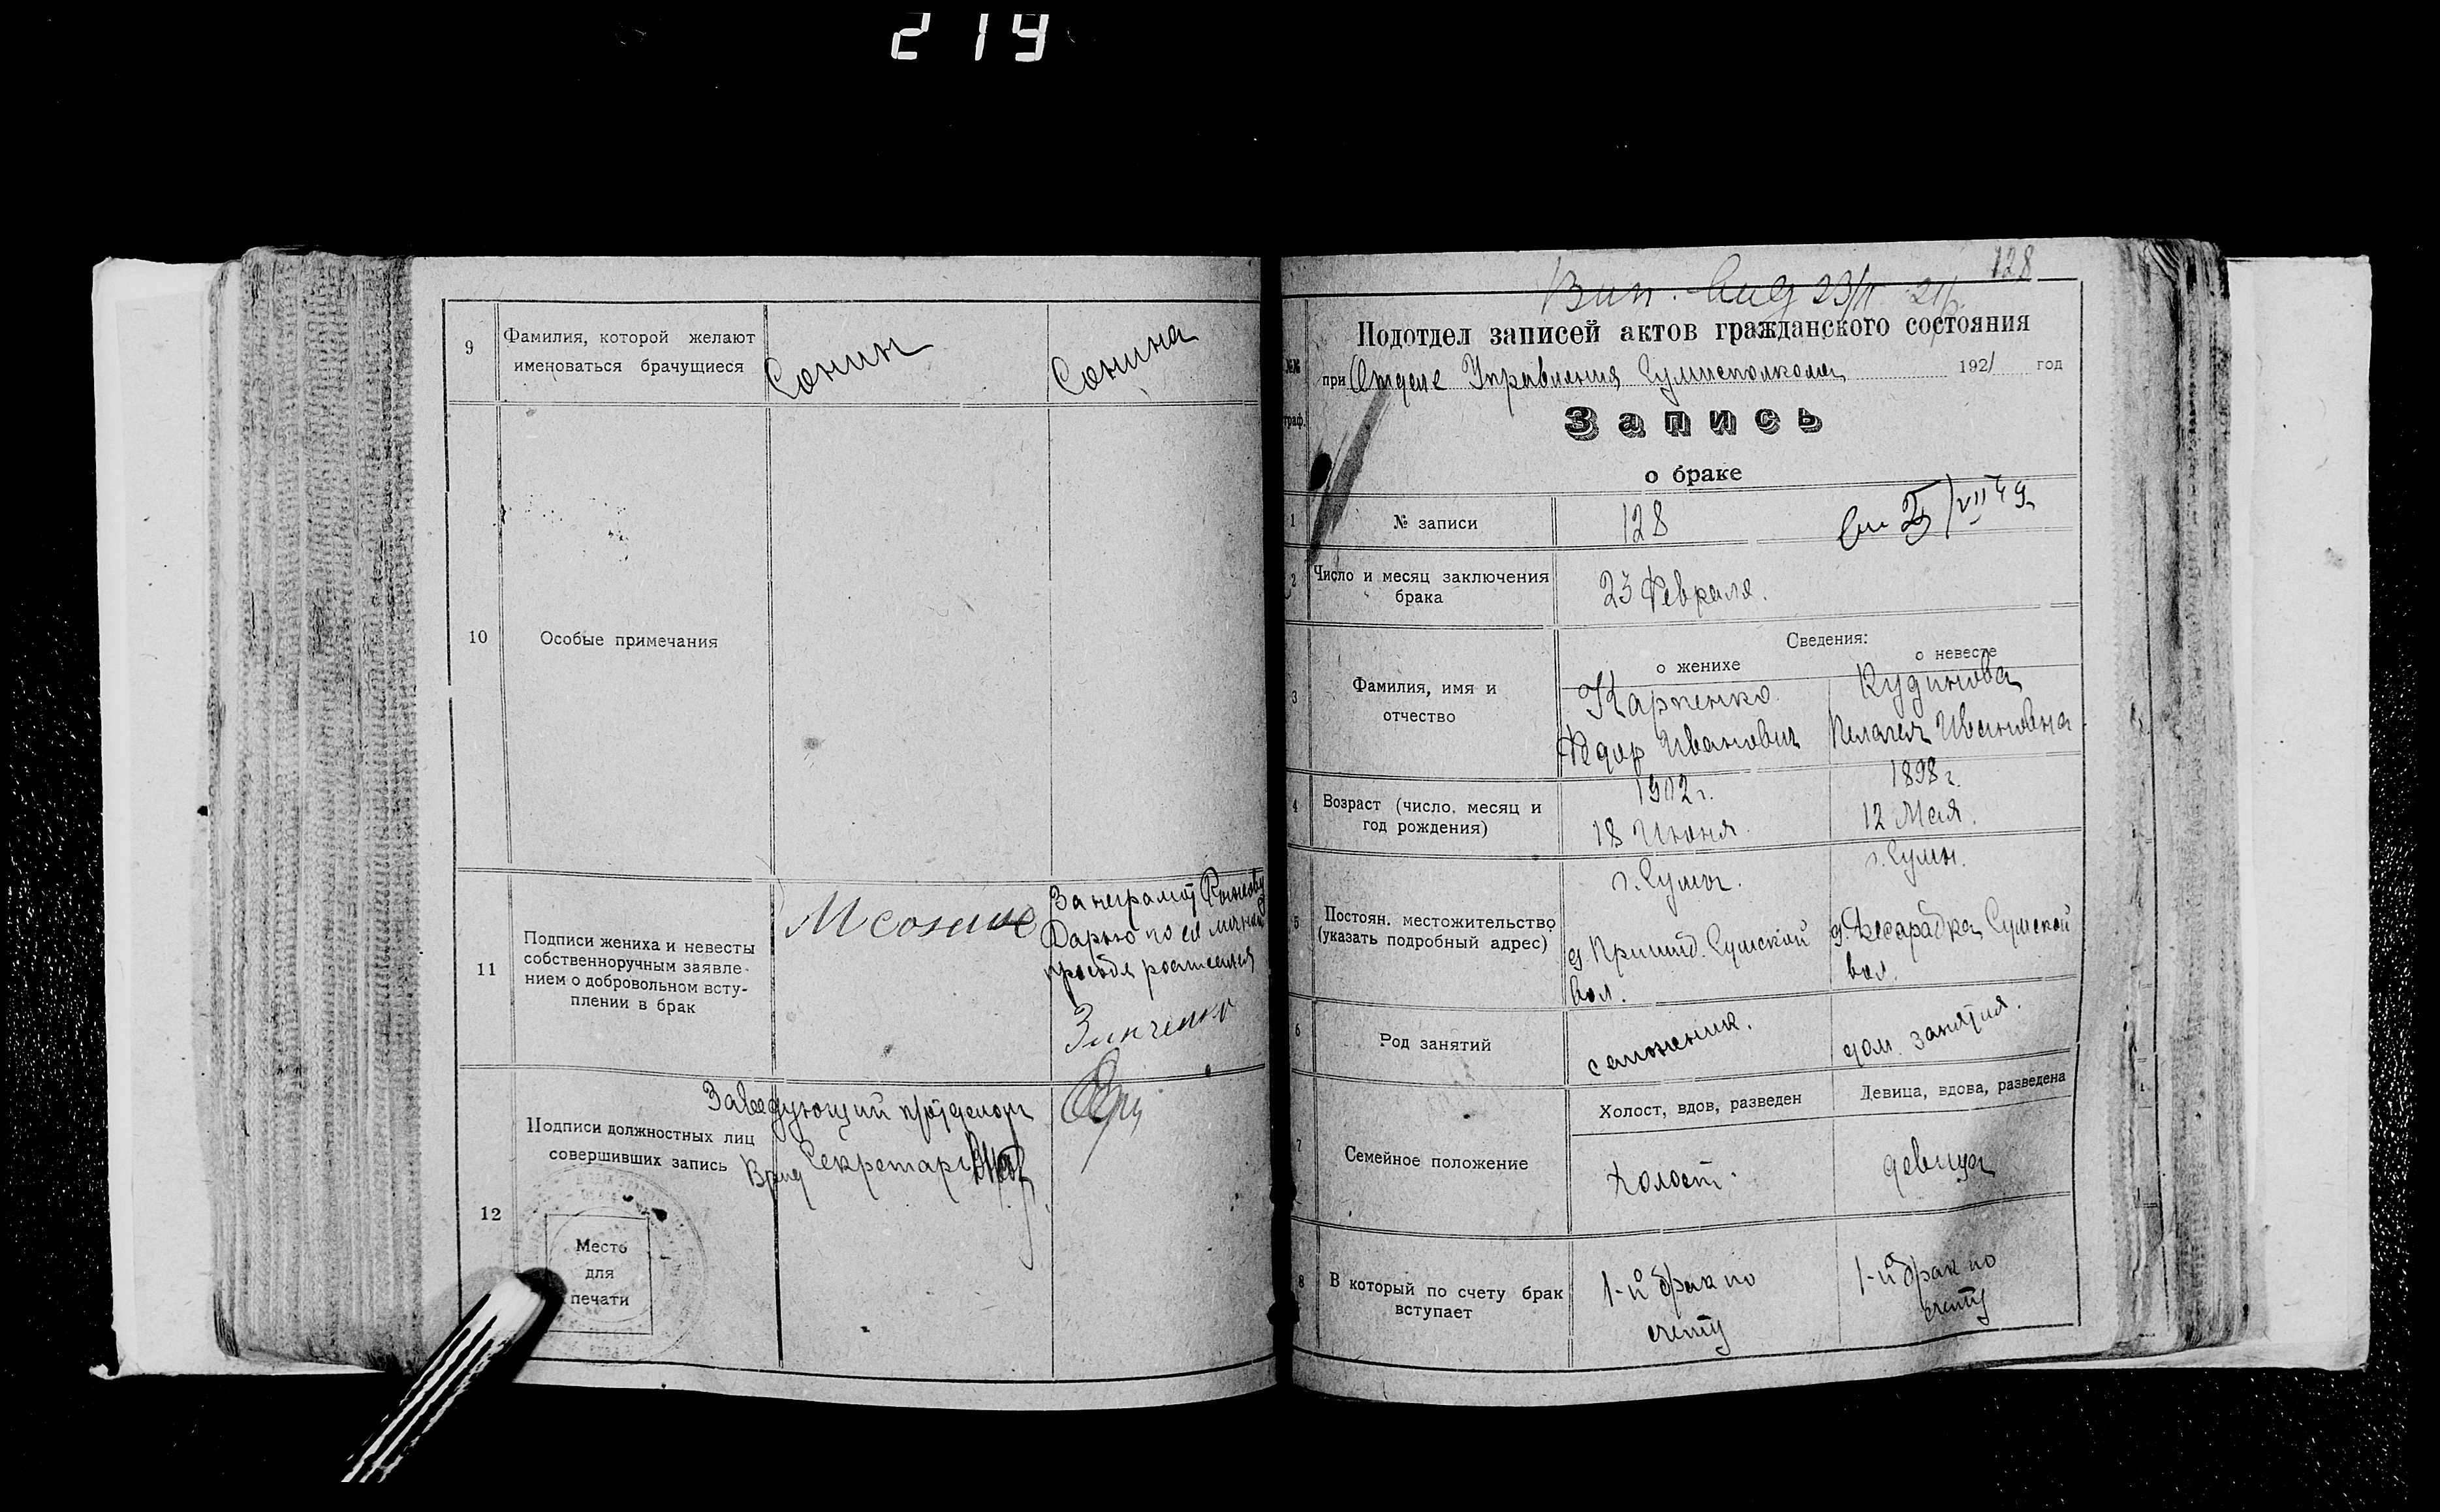 219
9
Фамилия, которой желают
именоваться брачущиеся
Сонин
Сонина
10
Особые примечания
11
Подписи жениха и невесты
собственноручным заявле-
нием о добровольном всту-
плении в брак
М Сонин
За неграмот
Дарью по ея личной
просьбе
Зинченко
12
Подписи должностных лиц
совершивших запись
Заведующий п/отделом
Врид Секретарь
Место
для
печати
128
Вып. 23/II 21
№№
граф.
Подотдел записей актов гражданского состояния
при Отделе Управления Сумисполкома 1921 год
Запись
о браке
1
№ записи
128
VII 49
2
Число и месяц заключения
брака
23 Февраля.
Сведения:
о женихе
о невесте
3
Фамилия, имя и
отчество
Карпенко
Федор Иванович
Кудинова
Пелагея Ивановна
4
Возраст (число, месяц и
год рождения)
1902 г.
18 Июня
1898 г.
12 Мая.
5
Постоян. местожительство
(указать подробный адрес)
г. Сумы.
Сумской
вол.
г. Сумы.
Сумской
вол.
6
Род занятий
сапожник.
дом. занятия.
7
Семейное положение
Холост, вдов, разведен
Девица, вдова, разведена
холост.
девица
8
В который по счету брак
вступает
1-й брак по
счету
1-й брак по
счету